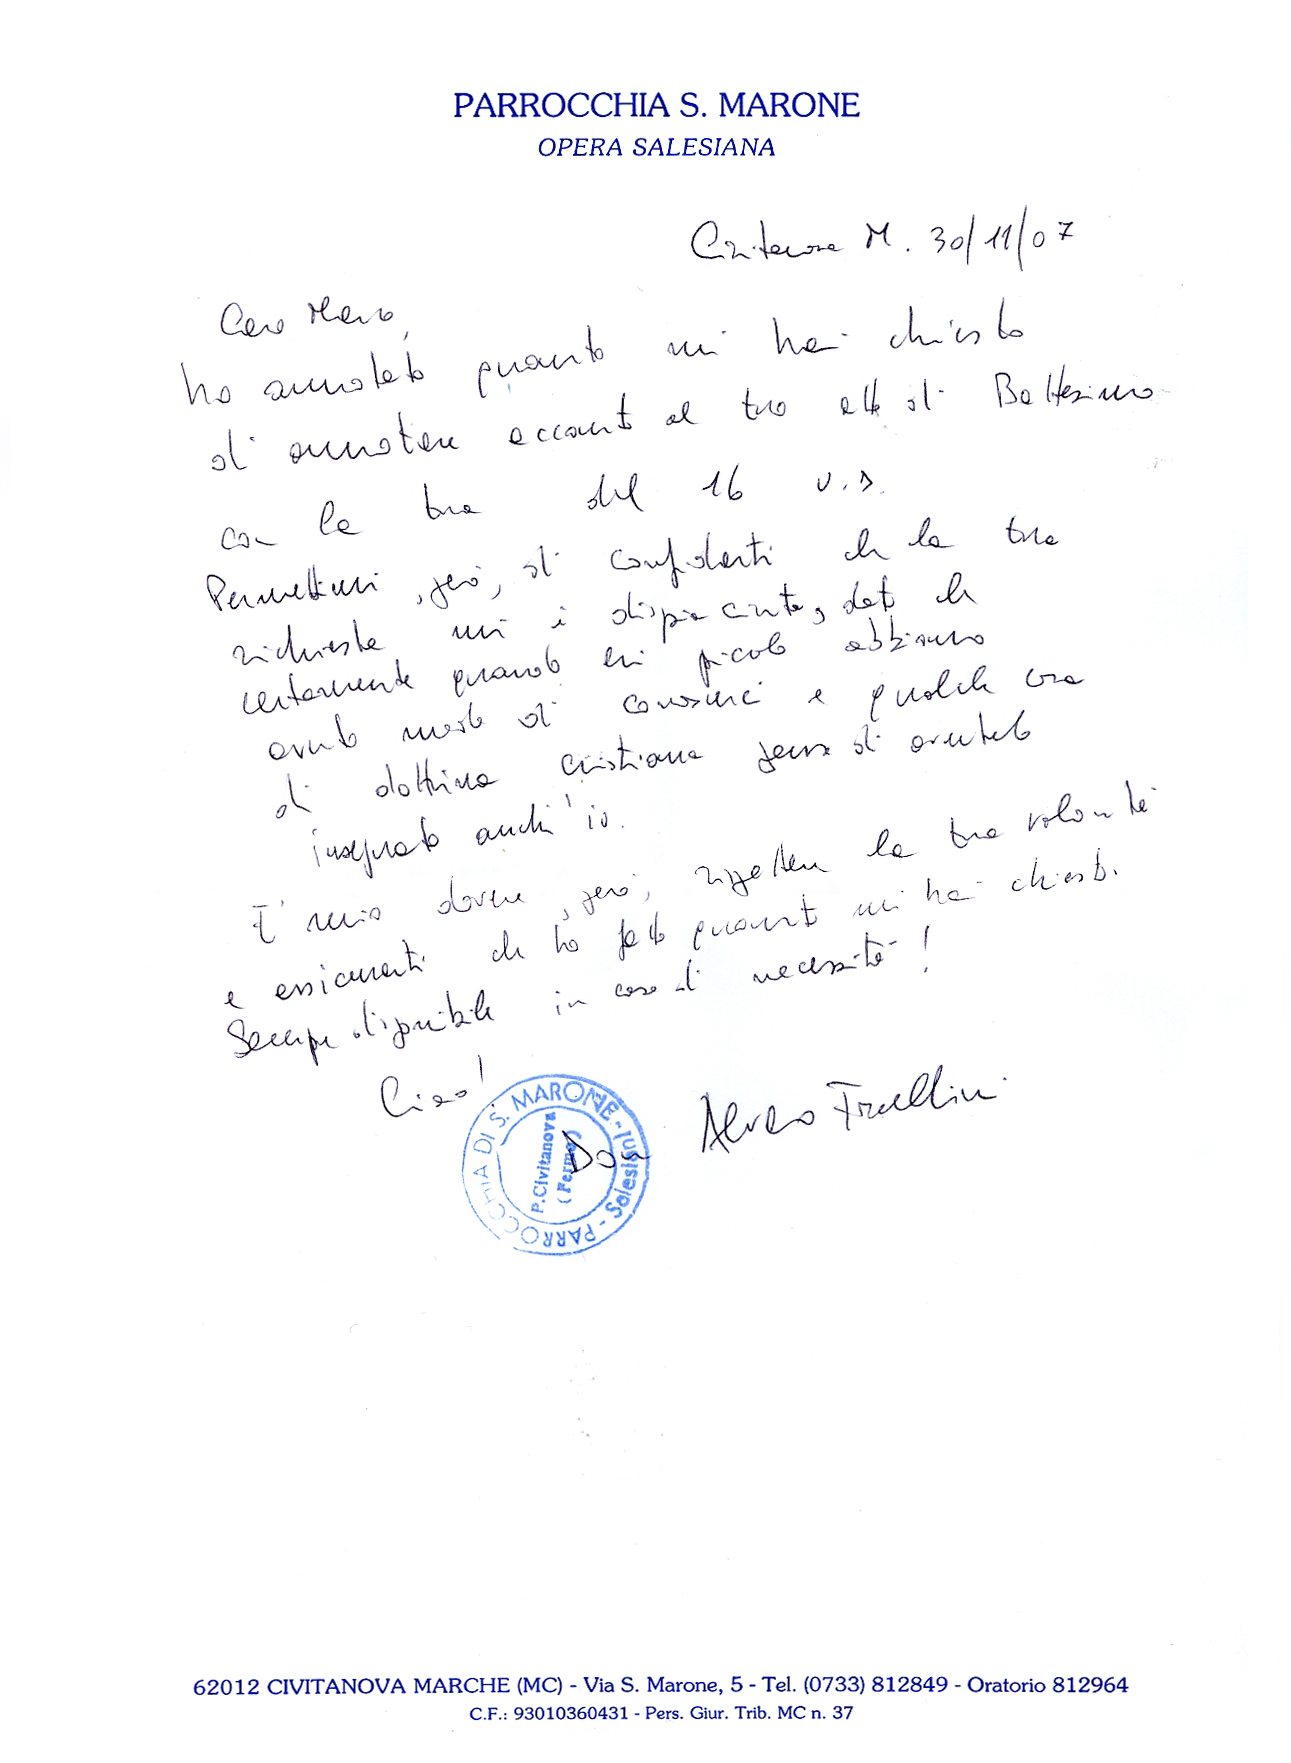 PARROCCHIA S. MARONE
OPERA SALESIANA
Civitanova M. 30/11/07
Caro Marco,
ho annotato quanto mi hai chiesto
di annotare accanto al tuo atto di Battesimo
con la tua del 16 u.s.
Permettimi, però, di confidarti che la tua
richiesta mi è dispiaciuta, dato che
certamente quando eri piccolo abbiamo
avuto modo di conoscerci e qualche ora
di dottrina cristiana penso di avertelo
insegnato anch'io.
E' mio dovere, però, rispettare la tua volontà
e assicurarti che ho fatto quanto mi hai chiesto.
Sempre disponibile in caso di necessità!
Ciao!
Don Alvaro Fralli
PARROCCHIA DI S. MARONE - Salesiani
P.Civitanova
(Fermo)
62012 CIVITANOVA MARCHE (MC) - Via S. Marone, 5 - Tel. (0733) 812849 - Oratorio 812964
C.F.: 93010360431 - Pers. Giur. Trib. MC n. 37